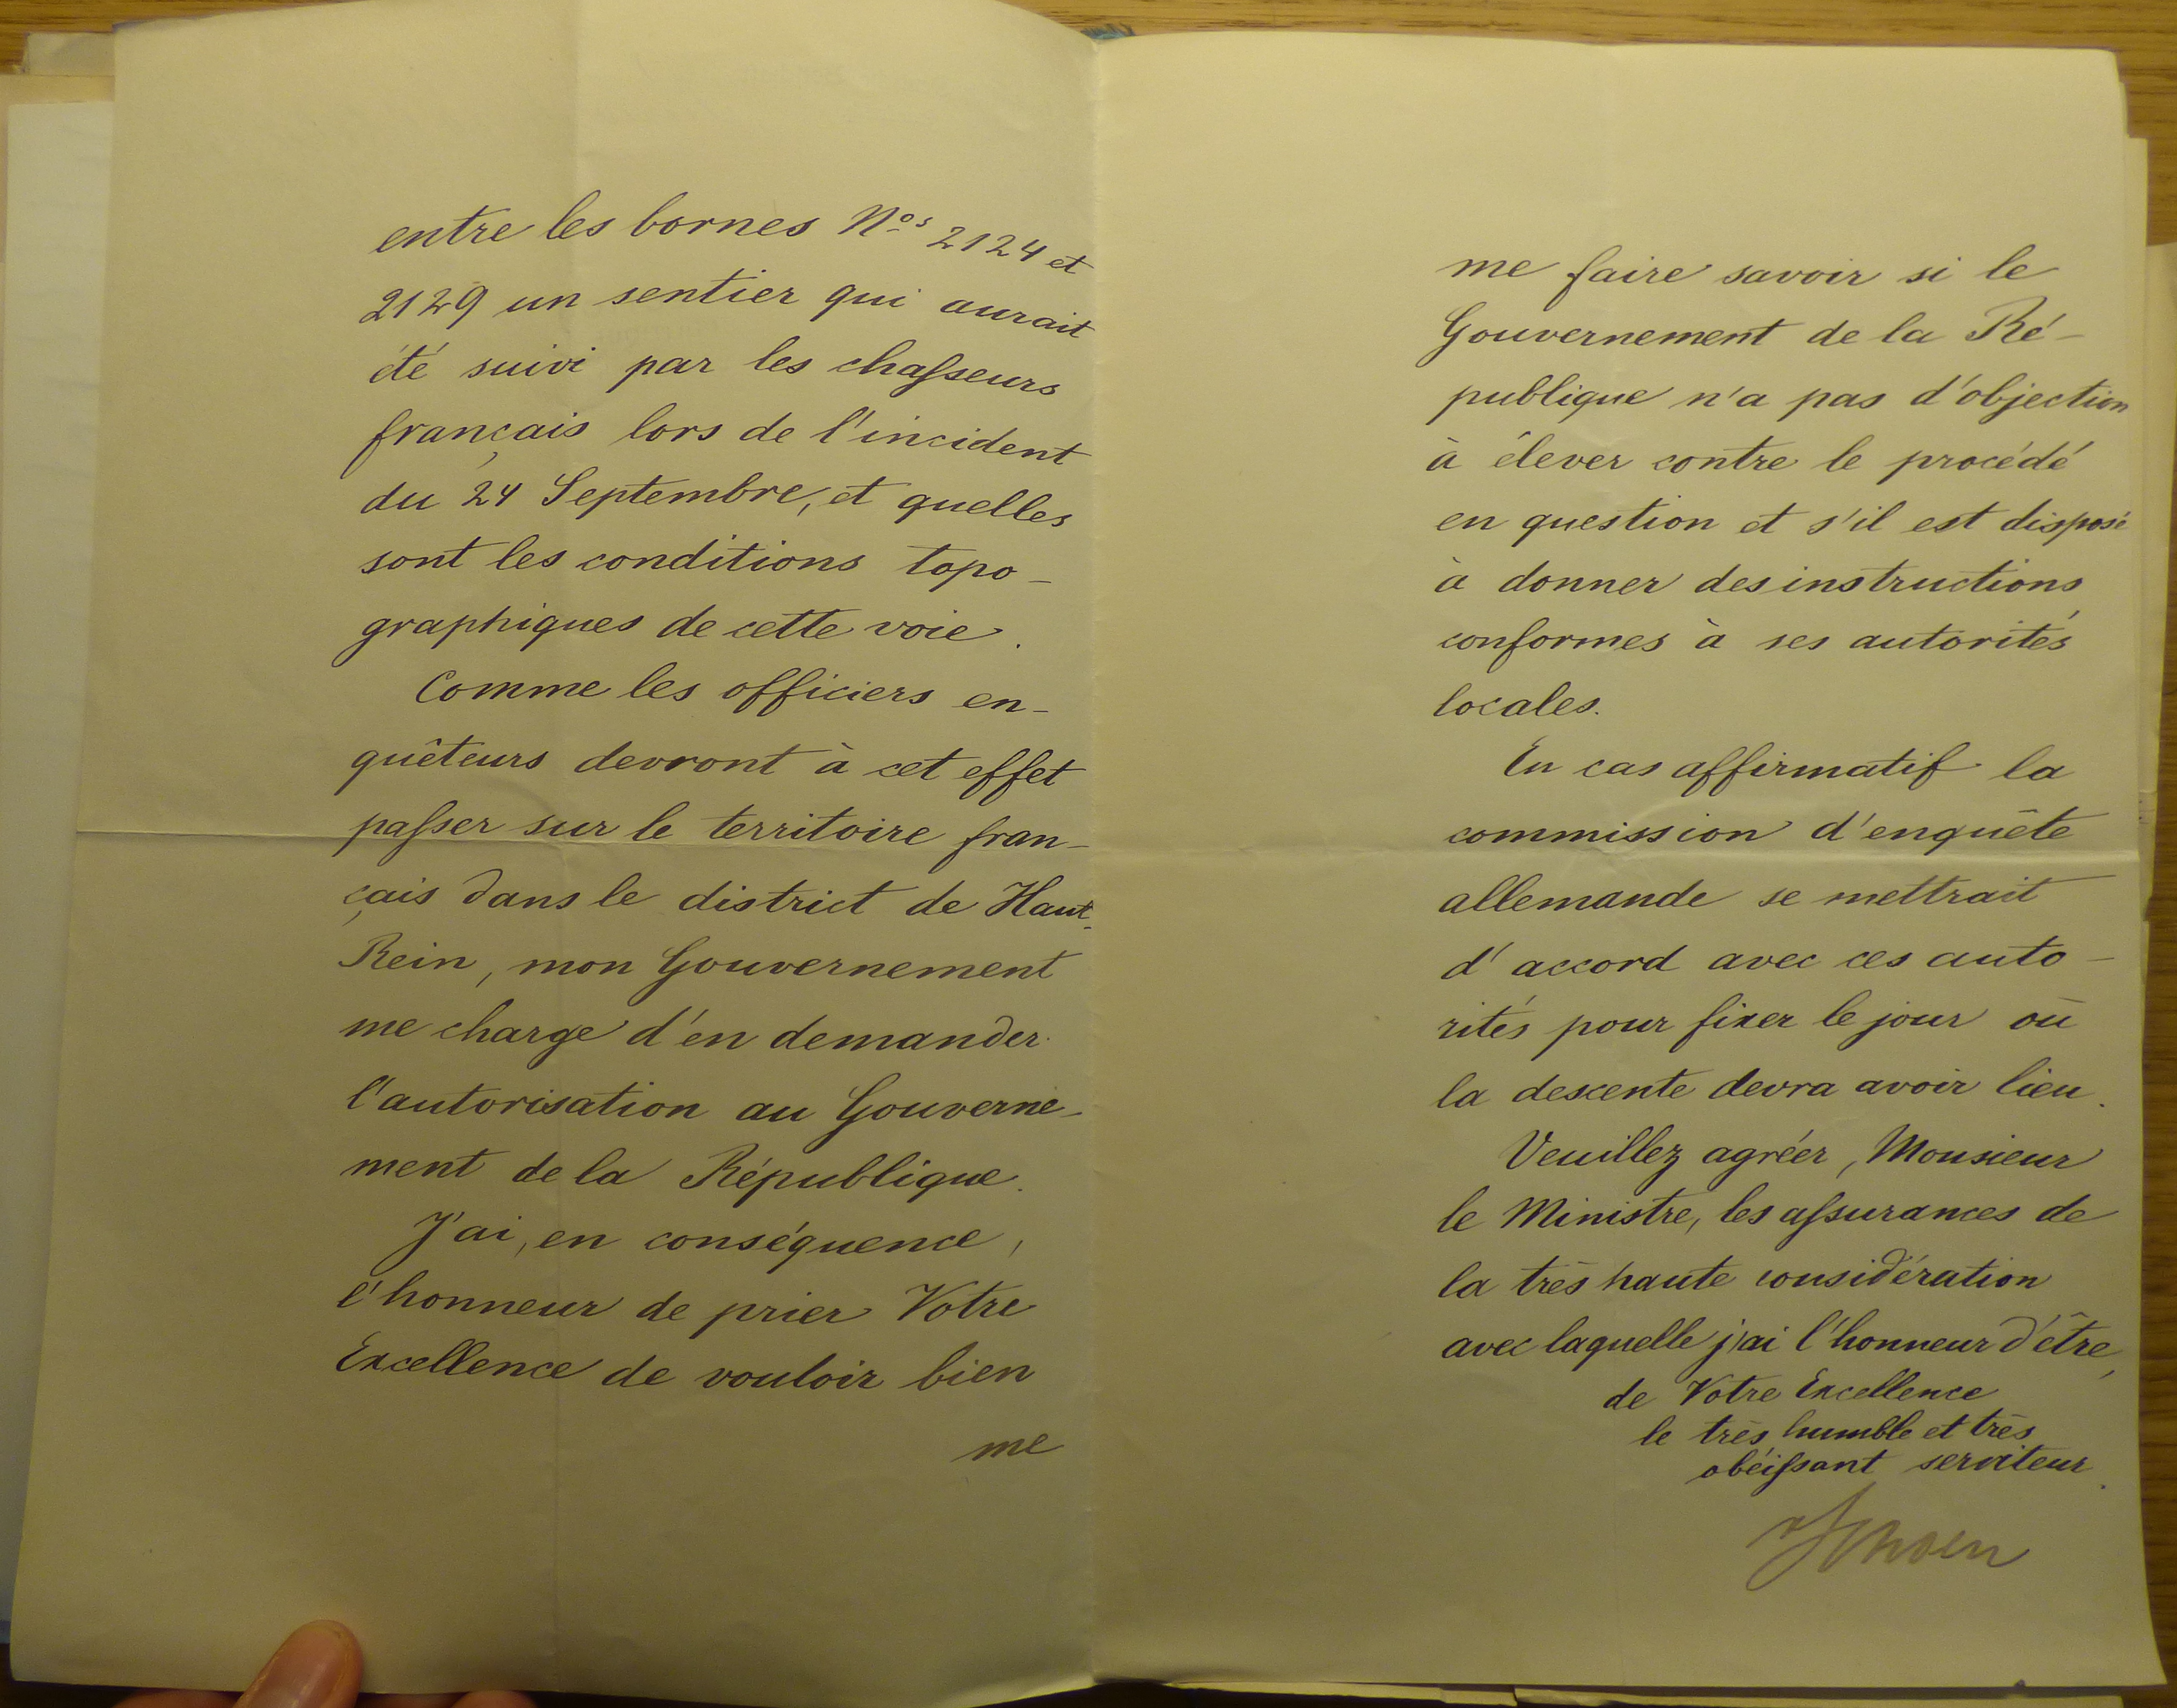 entre les bornes Nos 2124 et
2129 un sentier qui aurait
été suivi par les chasseurs
français lors de l'incident
du 24 Septembre, et quelles
sont les conditions topo-
graphiques de cette voie.
Comme les officiers en-
quêteurs devront à cet effet
passer sur le territoire fran-
çais dans le district de Haut-
Rein, mon Gouvernement
me charge d'en demander
l'autorisation au Gouverne-
ment de la République.
J'ai, en conséquence,
l'honneur de prier Votre
Excellence de vouloir bien
me
me faire savoir si le
Gouvernement de la Ré-
publique n'a pas d'objection
à élever contre le procédé
en question et s'il est disposé
à donner des instructions
conformes à ses autorités
locales.
En cas affirmatif la
commission d'enquête
allemande se mettrait
d'accord avec ces auto-
rités pour fixer le jour où
la descente devra avoir lieu.
Veuillez agréer, Monsieur
le Ministre, les assurances de
la très haute considération
avec laquelle j'ai l'honneur d'être,
de Votre Excellence
le très humble et très
obéissant serviteur.
Schoen